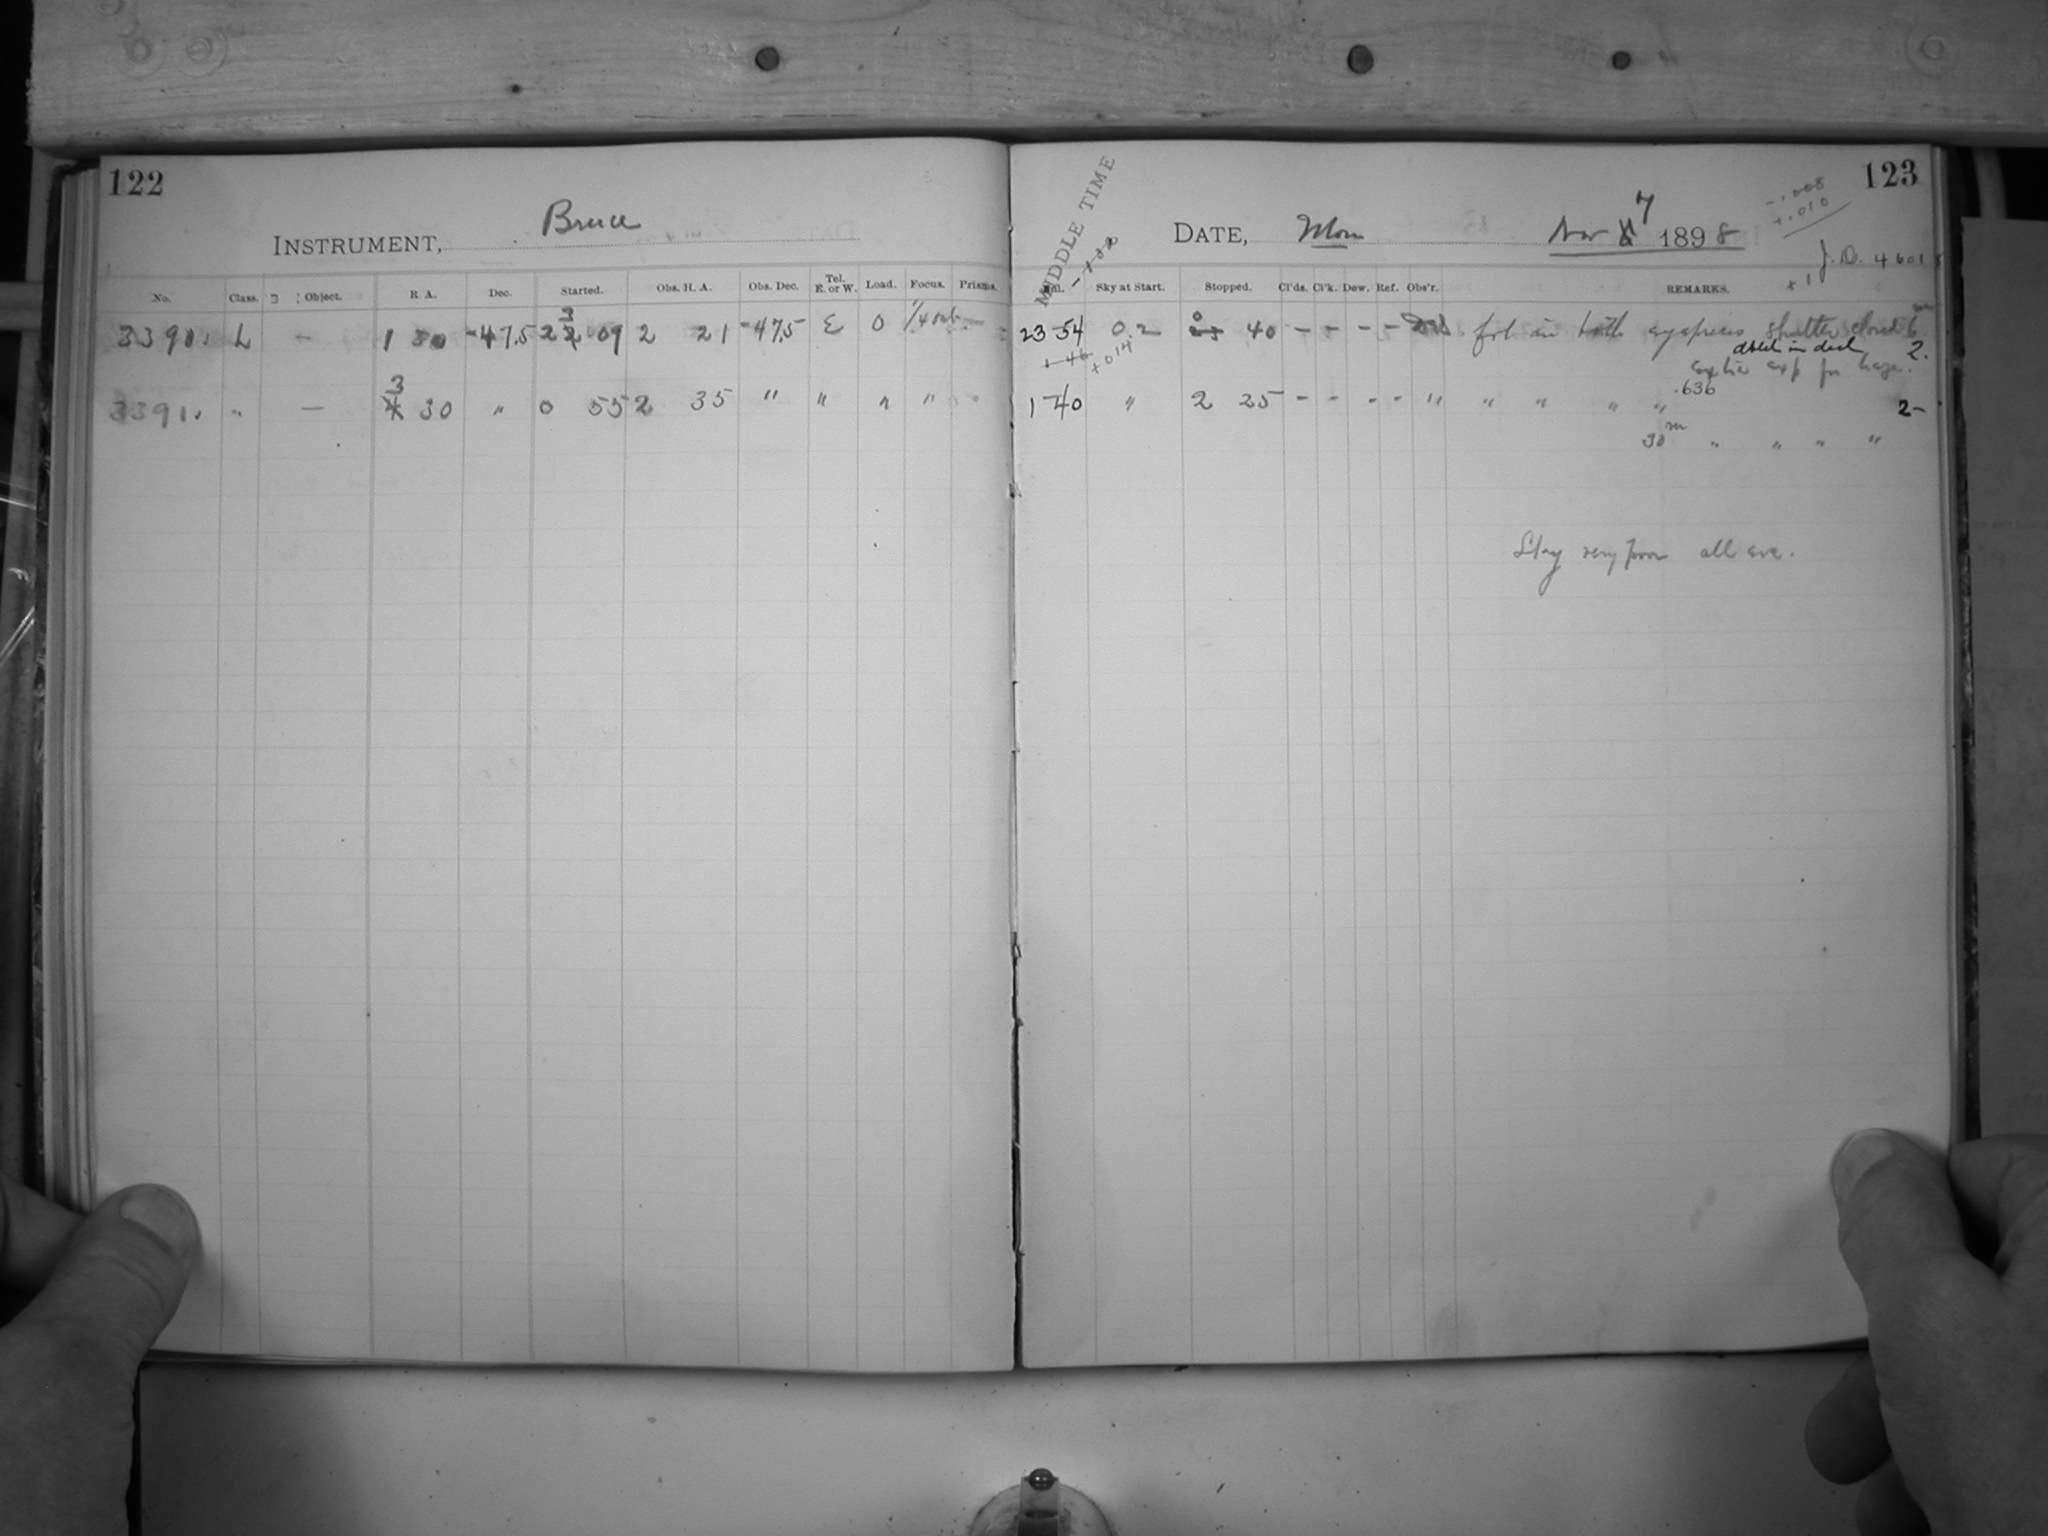 122
123
INSTRUMENT, Bruce
MIDDLE TIME
DATE, Mon Nov 7 1898
-.008
+.010
J.D. 4601
+1
No. Class. Object. R. A. Dec. Started. Obs. H. A. Obs. Dec. Tel. E. or W. Load. Focus. Prisms. Sky at Start. Stopped. Cl'ds. Cl'k. Dew. Ref. Obs'r. REMARKS.
3391. L — 1 30 -47.5 23 09 2 21 -47.5 E 0 — 23 54 0.2 0 40 - - - - in both eyepieces shutter closed 6
+.014 2.
exp for haze.
.636
3391. " — 3 30 " 0 55 2 35 " " " " 1 40 " 2 25 - - - - " " " " " 2-
30 m " " " "
very poor all eve.